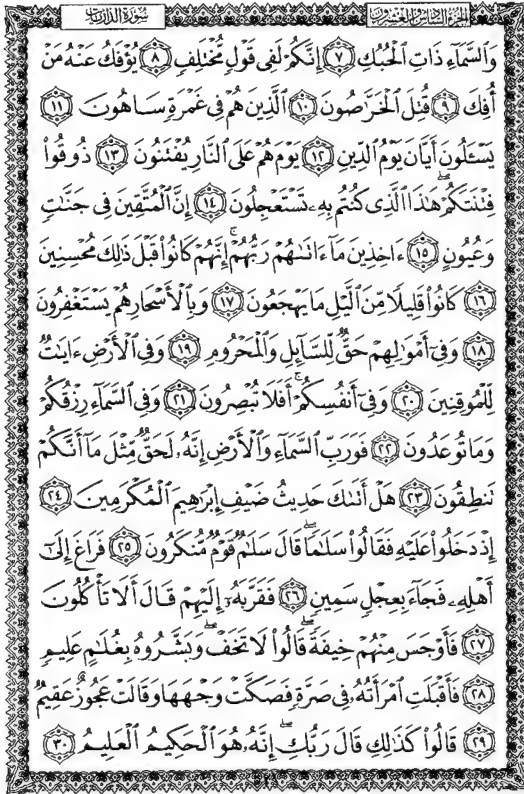 الجزء السادس والعشرون سورة الذاريات
وَٱلسَّمَآءِ ذَاتِ ٱلْحُبُكِ ٧ إِنَّكُمْ لَفِى قَوْلٍ مُّخْتَلِفٍ ٨ يُؤْفَكُ عَنْهُ مَنْ
أُفِكَ ٩ قُتِلَ ٱلْخَرَّٰصُونَ ١٠ ٱلَّذِينَ هُمْ فِى غَمْرَةٍ سَاهُونَ ١١
يَسْـَٔلُونَ أَيَّانَ يَوْمُ ٱلدِّينِ ١٢ يَوْمَ هُمْ عَلَى ٱلنَّارِ يُفْتَنُونَ ١٣ ذُوقُوا۟
فِتْنَتَكُمْ هَٰذَا ٱلَّذِى كُنتُم بِهِۦ تَسْتَعْجِلُونَ ١٤ إِنَّ ٱلْمُتَّقِينَ فِى جَنَّٰتٍ
وَعُيُونٍ ١٥ ءَاخِذِينَ مَآ ءَاتَىٰهُمْ رَبُّهُمْ ۚ إِنَّهُمْ كَانُوا۟ قَبْلَ ذَٰلِكَ مُحْسِنِينَ
١٦ كَانُوا۟ قَلِيلًا مِّنَ ٱلَّيْلِ مَا يَهْجَعُونَ ١٧ وَبِٱلْأَسْحَارِ هُمْ يَسْتَغْفِرُونَ
١٨ وَفِىٓ أَمْوَٰلِهِمْ حَقٌّ لِّلسَّآئِلِ وَٱلْمَحْرُومِ ١٩ وَفِى ٱلْأَرْضِ ءَايَٰتٌ
لِّلْمُوقِنِينَ ٢٠ وَفِىٓ أَنفُسِكُمْ ۚ أَفَلَا تُبْصِرُونَ ٢١ وَفِى ٱلسَّمَآءِ رِزْقُكُمْ
وَمَا تُوعَدُونَ ٢٢ فَوَرَبِّ ٱلسَّمَآءِ وَٱلْأَرْضِ إِنَّهُۥ لَحَقٌّ مِّثْلَ مَآ أَنَّكُمْ
تَنطِقُونَ ٢٣ هَلْ أَتَىٰكَ حَدِيثُ ضَيْفِ إِبْرَٰهِيمَ ٱلْمُكْرَمِينَ ٢٤
إِذْ دَخَلُوا۟ عَلَيْهِ فَقَالُوا۟ سَلَٰمًا ۖ قَالَ سَلَٰمٌ قَوْمٌ مُّنكَرُونَ ٢٥ فَرَاغَ إِلَىٰٓ
أَهْلِهِۦ فَجَآءَ بِعِجْلٍ سَمِينٍ ٢٦ فَقَرَّبَهُۥٓ إِلَيْهِمْ قَالَ أَلَا تَأْكُلُونَ
٢٧ فَأَوْجَسَ مِنْهُمْ خِيفَةً ۖ قَالُوا۟ لَا تَخَفْ ۖ وَبَشَّرُوهُ بِغُلَٰمٍ عَلِيمٍ
٢٨ فَأَقْبَلَتِ ٱمْرَأَتُهُۥ فِى صَرَّةٍ فَصَكَّتْ وَجْهَهَا وَقَالَتْ عَجُوزٌ عَقِيمٌ
٢٩ قَالُوا۟ كَذَٰلِكِ قَالَ رَبُّكِ ۖ إِنَّهُۥ هُوَ ٱلْحَكِيمُ ٱلْعَلِيمُ ٣٠